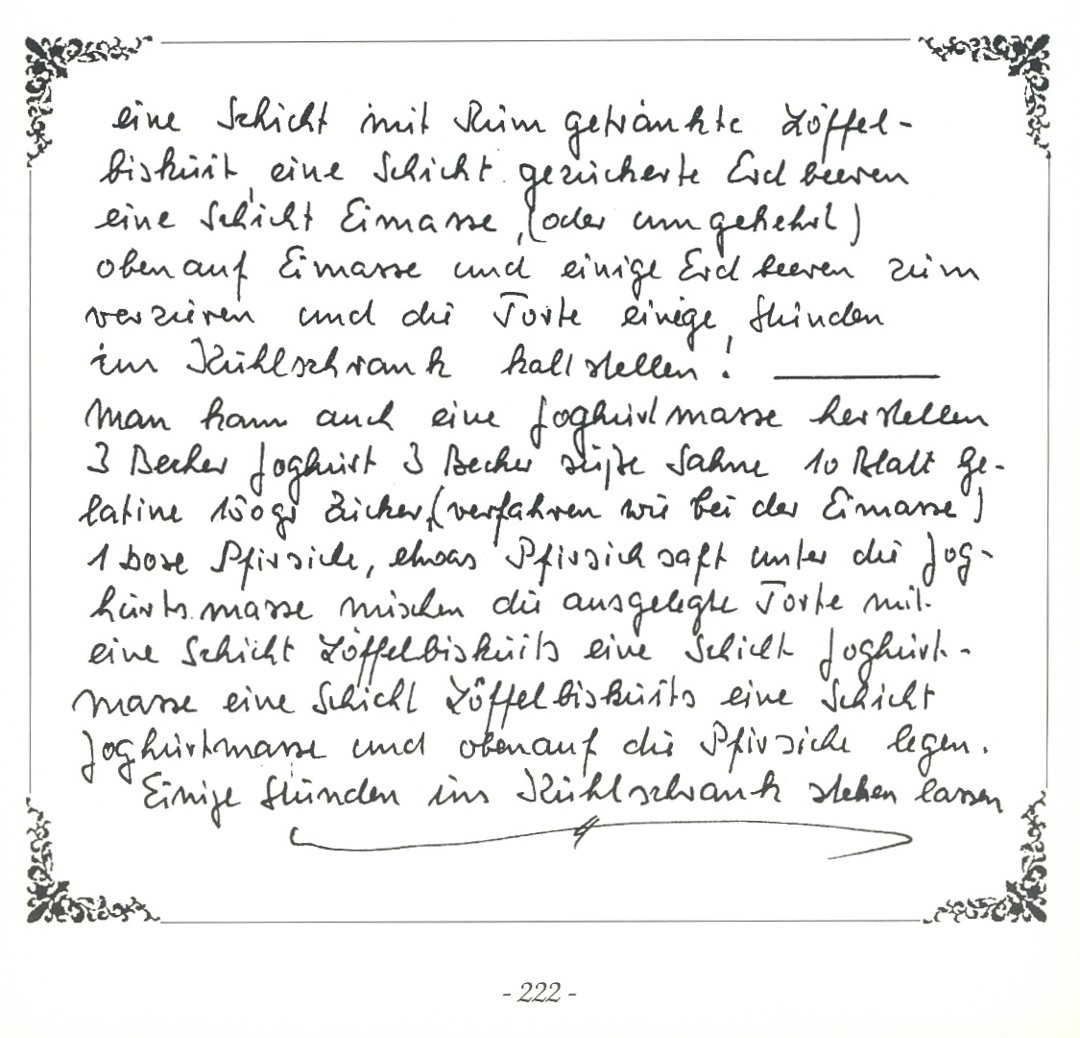 eine Schicht mit Rum getränkte Löffel-
biskuit, eine Schicht gezuckerte Erdbeeren
eine Schicht Eimasse, (oder umgekehrt)
obenauf Eimasse und einige Erdbeeren zum
verzieren und die Torte einige Stunden
im Kühlschrank kaltstellen!
Man kann auch eine Joghurtmasse herstellen
3 Becher Joghurt 3 Becher süße Sahne 10 Blatt Ge-
latine 150gr Zucker, (verfahren wie bei der Eimasse)
1 Dose Pfirsiche, etwas Pfirsichsaft unter die Jog-
hurtsmasse mischen die ausgelegte Torte mit
eine Schicht Löffelbiskuits eine Schicht Joghurt-
masse eine Schicht Löffelbiskuits eine Schicht
Joghurtmasse und obenauf die Pfirsiche legen.
Einige Stunden im Kühlschrank stehen lassen
- 222 -